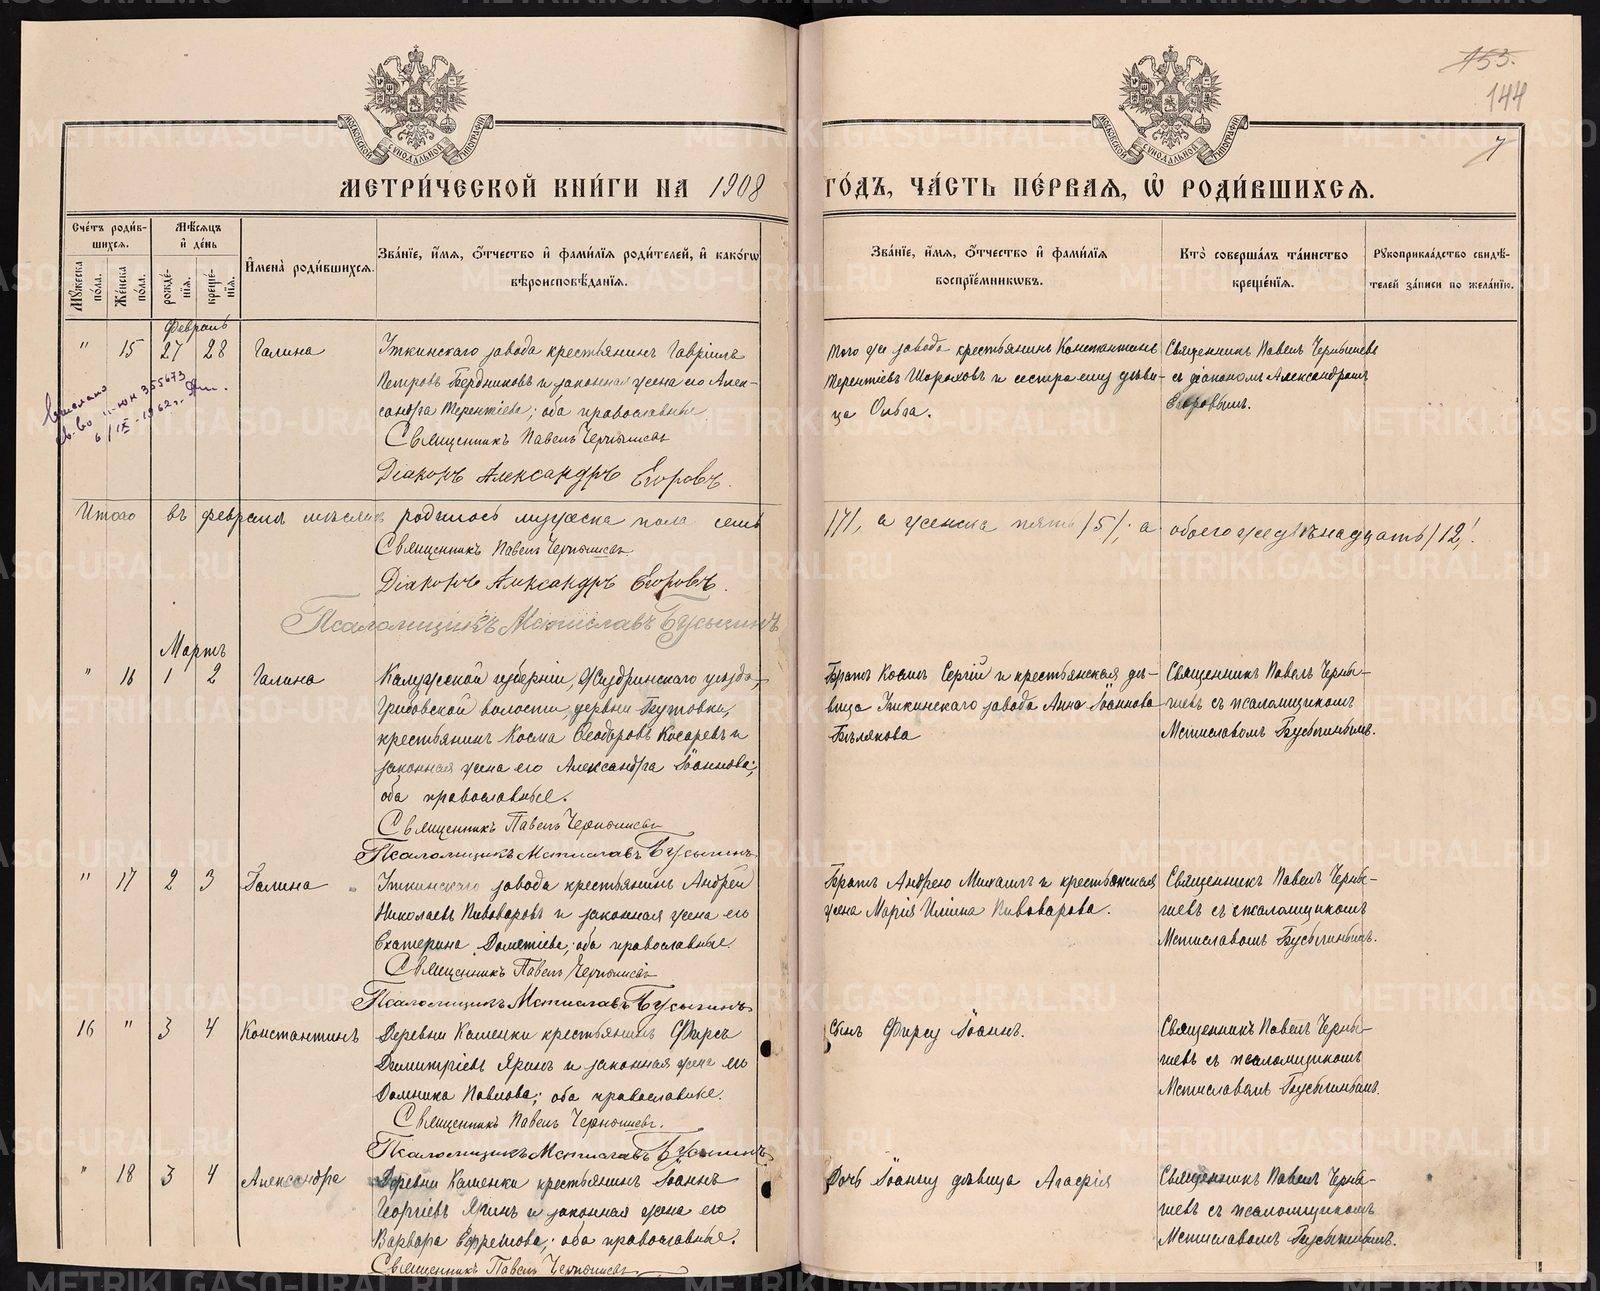 153.
144
7
МОСКОВСКОЙ СУНОДАЛЬНОЙ ТИПОГРАФІИ
МОСКОВСКОЙ СУНОДАЛЬНОЙ ТИПОГРАФІИ
МЕТРИ́ЧЕСКОЙ КНИ́ГИ НА 1908 ГО́ДЪ, ЧА́СТЬ ПЕ́РВАЯ, Ѡ РОДИ́ВШИХСЯ.
Сче́тъ роди́вшихся.
Мꙋ́жеска по́ла.
Же́нска по́ла.
Мѣ́сяцъ и҆ де́нь
рожде́нія.
креще́нія.
И҆мена̀ роди́вшихся.
Зва́ніе, и҆́мя, ѻ҆́тчество и҆ фами́лія роди́телей, и҆ како́гѡ вѣроисповѣ́данія.
Зва́ніе, и҆́мя, ѻ҆́тчество и҆ фами́лія воспріе́мниковъ.
Кто̀ соверша́лъ та́инство креще́нія.
Рꙋкоприкла́дство свидѣ́телей за́писи по жела́нію.
Февраль
" 15 27 28 Галина
Уткинскаго завода крестьянинъ Гавріилъ
Петровъ Бердниковъ и законная жена его Алек-
сандра Терентіева; оба православные
Священникъ Павелъ Чернышевъ
Діаконъ Александръ Егоровъ.
Того же завода крестьянинъ Константинъ
Терентіевъ Шороховъ и сестра ему дѣви-
ца Ольга.
Священникъ Павелъ Чернышевъ
съ діакономъ Александромъ
Егоровымъ.
Выслано
св-во II-ЮК 355673
6/IX-1962 г.
Итого въ февралѣ мѣсяцѣ родилось мужеска пола семь /7/, а женска пять /5/; а обоего же двѣнадцать /12/.
Священникъ Павелъ Чернышевъ
Діаконъ Александръ Егоровъ.
Псаломщикъ Мстиславъ Бусыгинъ
Мартъ
" 16 1 2 Галина
Калужской губерніи, Жиздринскаго уѣзда,
Грибовской волости деревни Бутовки,
крестьянинъ Косма Ѳеодоровъ Косаревъ и
законная жена его Александра Іоаннова;
оба православные.
Священникъ Павелъ Чернышевъ
Псаломщикъ Мстиславъ Бусыгинъ
Братъ Космы Сергій и крестьянская дѣ-
вица Уткинскаго завода Анна Іоаннова
Бѣлякова
Священникъ Павелъ Черны-
шевъ съ псаломщикомъ
Мстиславомъ Бусыгинымъ.
" 17 2 3 Галина
Уткинскаго завода крестьянинъ Андрей
Николаевъ Пивоваровъ и законная жена его
Екатерина Дометіева; оба православные.
Священникъ Павелъ Чернышевъ
Псаломщикъ Мстиславъ Бусыгинъ
Братъ Андрею Михаилъ и крестьянская
жена Марія Ильина Пивоварова.
Священникъ Павелъ Черны-
шевъ съ псаломщикомъ
Мстиславомъ Бусыгинымъ.
16 " 3 4 Константинъ
Деревни Каменки крестьянинъ Фирсъ
Димитріевъ Яринъ и законная жена его
Домника Павлова; оба православные.
Священникъ Павелъ Чернышевъ.
Псаломщикъ Мстиславъ Бусыгинъ
Сынъ Фирсу Іоаннъ.
Священникъ Павелъ Черны-
шевъ съ псаломщикомъ
Мстиславомъ Бусыгинымъ.
" 18 3 4 Александра
Деревни Каменки крестьянинъ Іоаннъ
Георгіевъ Яринъ и законная жена его
Варвара Ефремова; оба православные.
Священникъ Павелъ Чернышевъ
Дочь Іоанну дѣвица Агафія
Священникъ Павелъ Черны-
шевъ съ псаломщикомъ
Мстиславомъ Бусыгинымъ.
METRIKI.GASO-URAL.RU